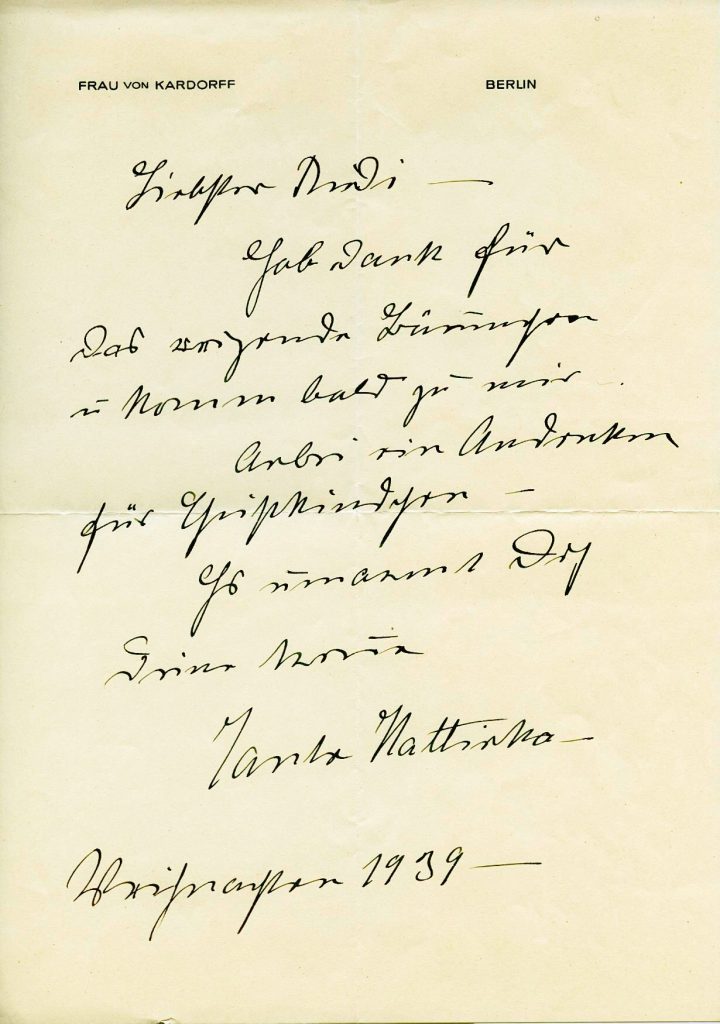 FRAU VON KARDORFF BERLIN
Liebster Rudi —
Hab dank für
das reizende Bäumchen
u komm bald zu mir.
Anbei ein Andenken
für Christkindchen —
Es umarmt Dich
Deine treue
Tante Kattinka —
Weihnachten 1939 —